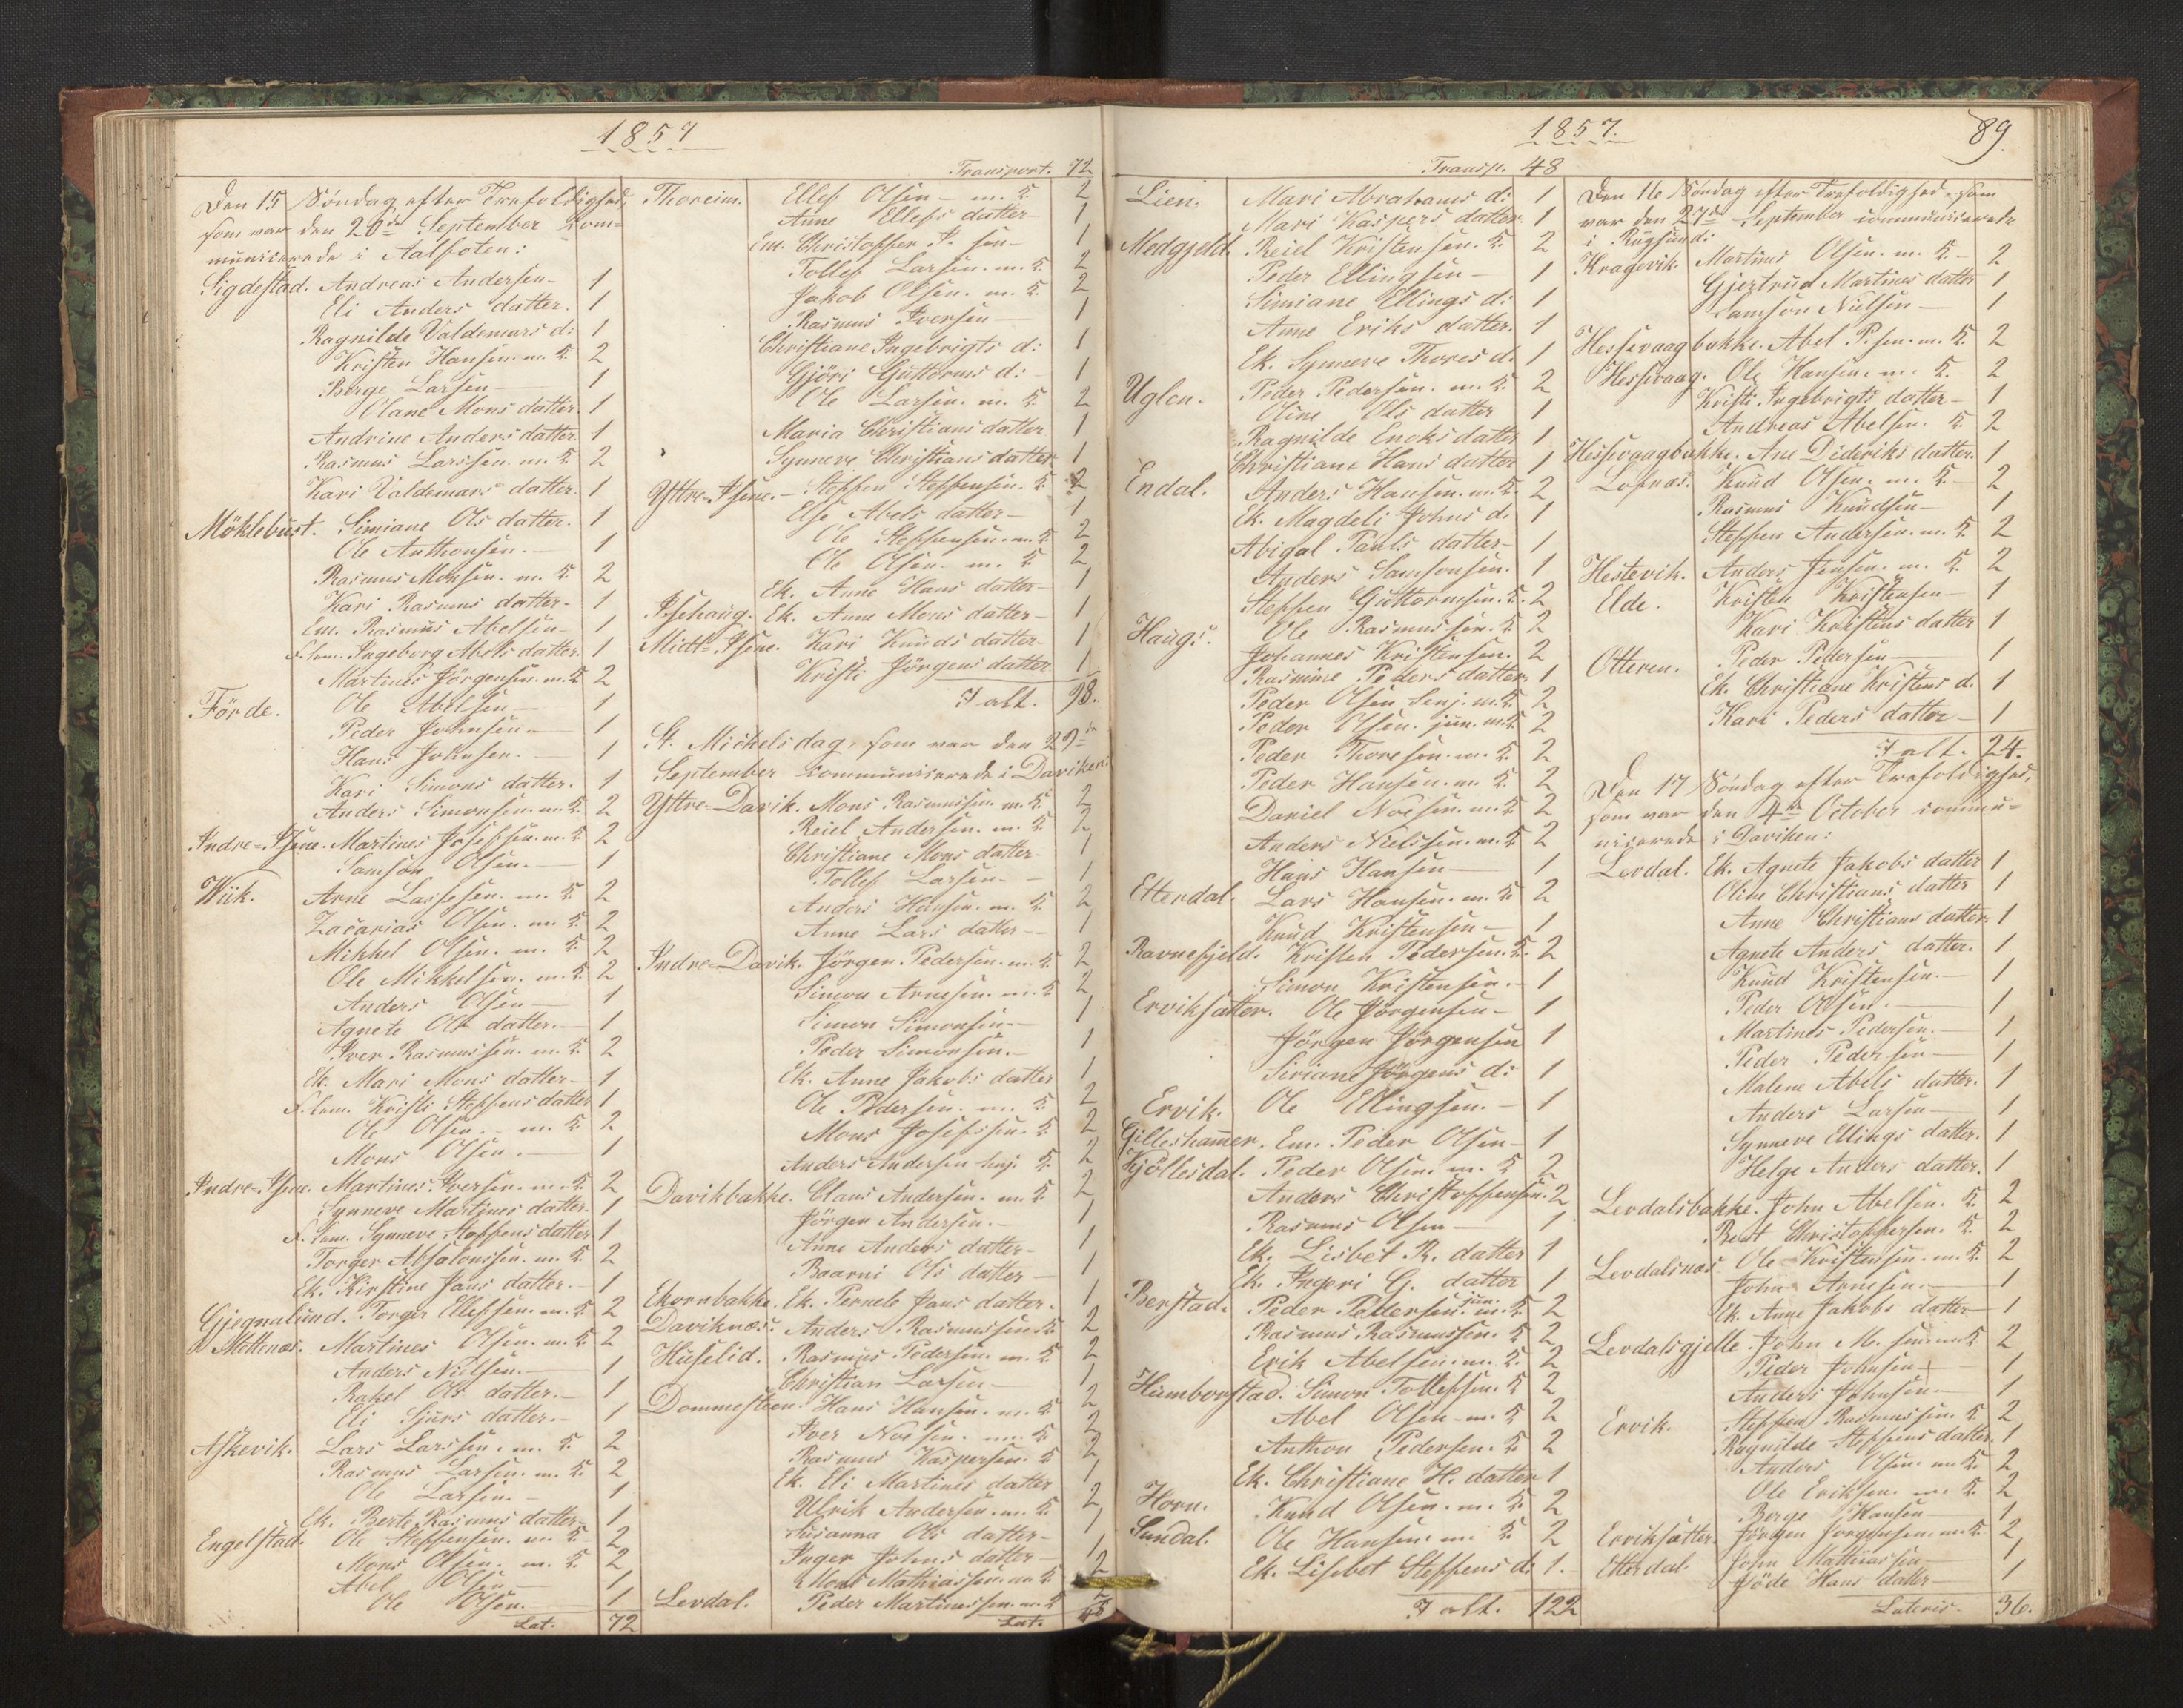 1857
Den 15 Söndag efter Trefoldighed,
som var den 20de September kom=
municerede i Aalfoten:
Sigdestad. Andreas Andersen- 1
Eli Anders datter. 1
Ragnilde Valdemars d: 1
Kristen Hansen. m. K. 2
Börge Larsen- 1
Olane Mons datter. 1
Andrine Anders datter. 1
Rasmus Larssen. m. K. 2
Kari Valdemars datter. 1
Möklebust. Simiane Ols datter. 1
Ole Anthonsen.- 1
Rasmus Monsen. m. K. 2
Kari Rasmus datter- 1
Em. Rasmus Abelsen- 1
Ingeborg Abels datter. 1
Martines Jörgensen. m. K. 2
Förde. Ole Abelsen- 1
Peder Johnsen- 1
Hans Johnsen. 1
Kari Simons datter. 1
Anders Simonsen. m. K. 2
Indre=Isene. Martines Josefsen. m. K. 2
Samson Olsen.- 1
Wiik. Arne Lassesen. m. K. 2
Zacarias Olsen. m. K. 2
Mikkel Olsen. m. K. 2
Ole Mikkelsen. m. K. 2
Anders Olsen- 1
Agnete Ols datter.- 1
Iver Rasmussen. m. K. 2
Ek. Mari Mons datter- 1
Kristi Steffens datter 1
Ole Olsen. m. K. 2
Mons Olsen.- 1
Indre=Isene. Martines Iversen. m. K. 2
Synneve Martines datter. 1
Synneve Steffens datter 1
Torger Absalonssen. m. K. 2
Ek. Kirstine Jans datter.- 1
Gjegnalund. Torger Ellefsen. m. K. 2
Mettenæs. Martines Olsen. m. K. 2
Anders Nielsen.- 1
Rakel Ols datter.- 1
Eli Sjurs datter.- 1
Askevik. Lars Larssen. m. K. 2
Rasmus Larsen. m. K. 2
Ole Larsen.- 1
Ek. Berte Rasmus datter- 1
Engelstad. Ole Steffensen. m. K. 2
Mons Olsen. m. K. 2
Abel Olsen- 1
Ole Olsen.- 1
Lat. 72
Transport. 72
Thoreim. Ellef Olsen- m. K. 2
Anne Ellefs datter- 1
Em. Christoffer P. sen- 1
Tollef Larsen. m. K. 2
Jakob Olsen. m. K. 2
Rasmus Iversen- 1
Christiane Ingebrigts d: 1
Gjöri Guttorms d:- 1
Ole Larsen. m. K. 2
Maria Christians datter 1
Synneve Christians datter 1
Yttre=Isene.- Steffen Steffensen. K. 2
Else Abels datter- 1
Ole Steffensen. m. K. 2
Ole Olsen. m. K. 2
Ek. Anne Hans datter- 1
Isehaug. Ek. Anne Mons datter- 1
Midt=Isene. Kari Knuds datter- 1
Kristi Jörgens datter 1
I alt. 98.
St. Mickelsdag, som var den 29de
September communicerede i Daviken:
Yttre=Davik. Mons Rasmussen m. K. 2
Reiel Andersen. m. K. 2
Christiane Mons datter- 1
Tollef Larsen.- 1
Anders Hansen. m. K. 2
Anne Lars datter- 1
Indre=Davik. Jörgen Pedersen. m. K. 2
Simon Arnesen. m. K. 2
Simon Simonsen- 1
Peder Simonsen.- 1
Ek. Anne Jakobs datter 1
Ole Pedersen. m. K. 2
Mons Josefssen. K. 2
Anders Andersen senj. K. 2
Davikbakke. Claus Andersen. m. K. 2
Jörgen Andersen.- 1
Anne Anders datter- 1
Baarni Ols datter- 1
Ekornbakke. Ek. Pernele Jans datter. 1
Daviknæs. Anders Rasmussen. K. 2
Huselid. Rasmus Pedersen. m. K. 2
Christian Larsen- 1
Dommesteen. Hans Hansen. m. K. 2
Iver Noesen. m. K. 2
Rasmus Kaspersen. K. 2
Ek. Eli Martines datter 1
Ulrik Andersen. m. K. 2
Susanna Ols datter- 1
Inger Johns datter- 1
Mons Mathiassen. m. K. 2
Levdal. Peder Martinussen. m. K. 2
Lat. 48
1857.
89.
Transp. 48
Lien. Mari Abrahams d: 1
Mari Kaspers datter. 1
Medgjeld. Reiel Kristensen. K. 2
Peder Ellingsen- 1
Simiane Ellings d: 1
Anne Eriks datter. 1
Ek. Synneve Thores d. 1
Uglen. Peder Pedersen. m. K. 2
Oline Ols datter 1
Ragnilde Enoks datter 1
Christiane Hans datter 1
Endal. Anders Hansen. m. K. 2
Ek. Magdeli Johns d. 1
Abigal Pauls datter- 1
Anders Samsonsen. 1
Steffen Guttormsen. K. 2
Haugs. Ole Rasmussen. K. 2
Johannes Kristensen. 2
Rasmine Peders datter. 1
Peder Olsen Senj. m. K. 2
Peder Olsen. jun. m. K. 2
Peder Thoresen. m. K. 2
Peder Hansen. m. K. 2
Daniel Noesen. m. K. 2
Anders Nielssen. m. K. 2
Hans Hansen- 1
Etterdal. Lars Hansen. m. K. 2
Knud Kristensen- 1
Ravnefjeld. Kristen Pedersen. K. 2
Simon Kristensen.- 1
Erviksætter. Ole Jörgensen- 1
Jörgen Jörgensen 1
Siriane Jörgens d: 1
Ervik. Ole Ellingsen.- 1
Gilleshammer. Em. Peder Olsen- 1
Kjöllesdal. Peder Olsen. m. K. 2
Anders Christoffersen. 2
Rasmus Olsen- 1
Ek. Lisbet R. datter 1
Ek. Ingeri G. datter 1
Berstad. Peder Pedersen. jun. m. K. 2
Rasmus Rasmussen. K. 2
Erik Abelsen. m. K. 2
Humborstad. Simon Tollefsen. K. 2
Abel Olsen- m. K. 2
Anthon Pedersen. K. 2
Ek. Christiane H. datter 1
Horn. Knud Olsen. m. K. 2
Sundal. Ole Hansen m. K. 2
Ek. Lisebet Steffens d. 1.
I alt. 122
Den 16 Söndag efter Trefoldighed, som
var den 27de September communicerede
i Rügsund:
Kragevik. Martinus Olsen. m. K.- 2
Gjertrud Martines datter 1
Samson Nielsen- 1
Hessevaagbakke. Abel P. sen. m. K. 2
Hessevaag. Ole Hansen. m. K. 2
Kristi Ingebrigts datter- 1
Andreas Abelsen. K. 2
Hessevaagbakke. Ane Dideriks datter. 1
Lofnæs. Knud Olsen. m. K.- 2
Rasmus Knudsen- 1
Steffen Andersen. m. K. 2
Hestevik. Anders Jensen. m. K. 2
Elde. Kristen Kristensen- 1
Kari Kristens datter 1
Otteren. Peder Pedersen- 1
Ek. Christiane Kristens d. 1
Kari Peders datter- 1
I alt. 24.
Den 17 Söndag efter Trefoldighed,
som var den 4de October commu=
nicerede i Daviken:
Levdal. Ek. Agnete Jakobs datter 1
Oline Christians datter 1
Anne Christians datter 1
Agnete Anders datter. 1
Knud Kristensen.- 1
Peder Olsen.- 1
Martines Pedersen.- 1
Peder Pedersen- 1
Malene Abels datter. 1
Anders Larsen- 1
Synneve Ellings datter. 1
Helge Anders datter. 1
Levdalsbakke. John Abelsen. K. 2
Bent Christoffersen. K. 2
Levdalsnæs. Ole Kristensen. m. K. 2
John Arnesen- 1
Ek. Anne Jakobs datter 1
Levdalsgjelle. John M. sen. m. K. 2
Peder Johnsen- 1
Anders Johnsen- 1
Ervik. Steffen Rasmussen. K. 2
Ragnilde Steffens datter. 1
Anders Olsen m. K. 2
Ole Eriksen. m. K. 2
Börge Hansen- 1
Erviksætter. Jörgen Jörgensen m. K. 2
Etterdal. John Mathiassen- 1
Jöde Hans datter- 1
Lateris. 36.